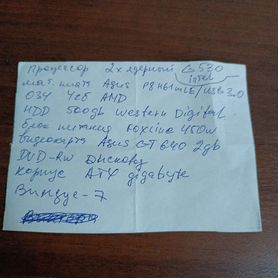 Процессор 2х ядерный G530 intel
мат. плата Asus P8H61-mLE/USB3.0
ОЗУ 4гб AMD
HDD 500gb Western Digital
блок питания Foxline 450w
видеокарта Asus GT 640 2gb
DVD-RW дисковод
корпус ATX gigabyte
Виндус - 7